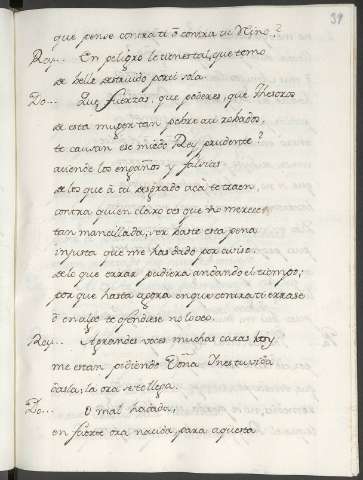 39
que pense contra ti ō contra tu Nino?
Rey... En peligro le tienes tal, que temo
de belle destruido por ti sola.
Do... Que fuerzas, que poderes, que thesoros
de esta muger tan pobre aqui robados,
te causan ese miedo Rey prudente?
auiendo los engaños y falsias
de los que â tu desgrado acà te traen,
contra quien claro ves que no merece
tan mancillada; ver hasta esta pena
injusta que me has dado por auiso.
de lo que errar pudiera andando el tiempo;
por que hasta agora en que contra ti errase
ō en algo te ofendiese no lo veo.
Rey... A grandes voces muchas caras hoy
me estan pidiendo Doña Ines tu vida
dasla; la ora se te llega.
Do... O mal hadada,
en fuerte ora nacida, para aquesta